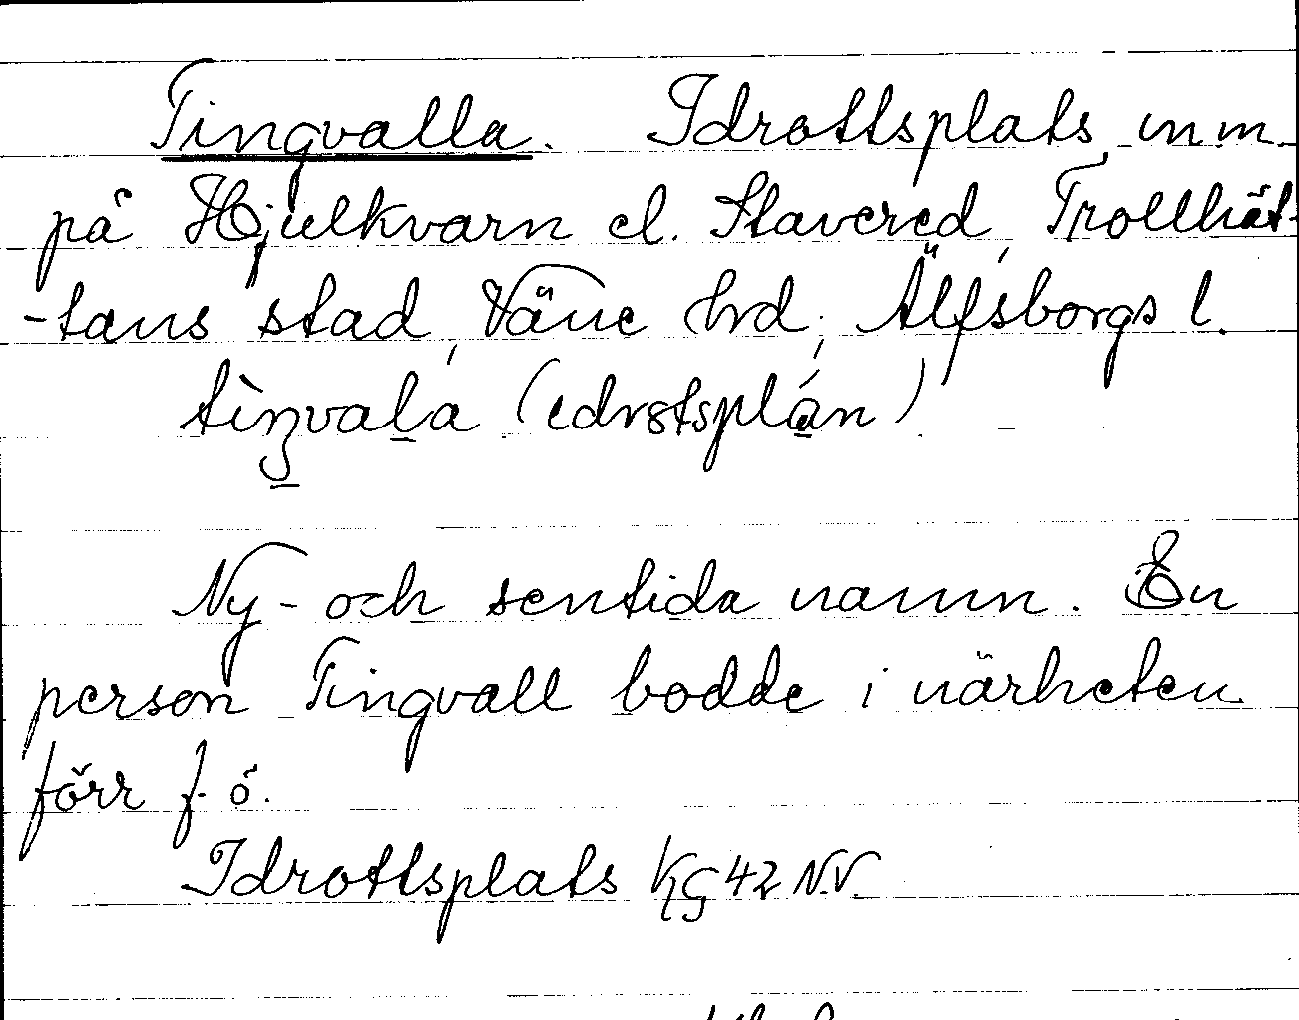 Tingvalla. Idrottsplats m.m.
på Hjulkvarn el. Stavered, Trollhät-
-tans stad, Väne hrd, Älfsborgs l.
tìŋvala (idrotsplán)
Ny- och sentida namn. En
person Tingvall bodde i närheten
förr f. ö.
Idrottsplats KG 42 N.V.